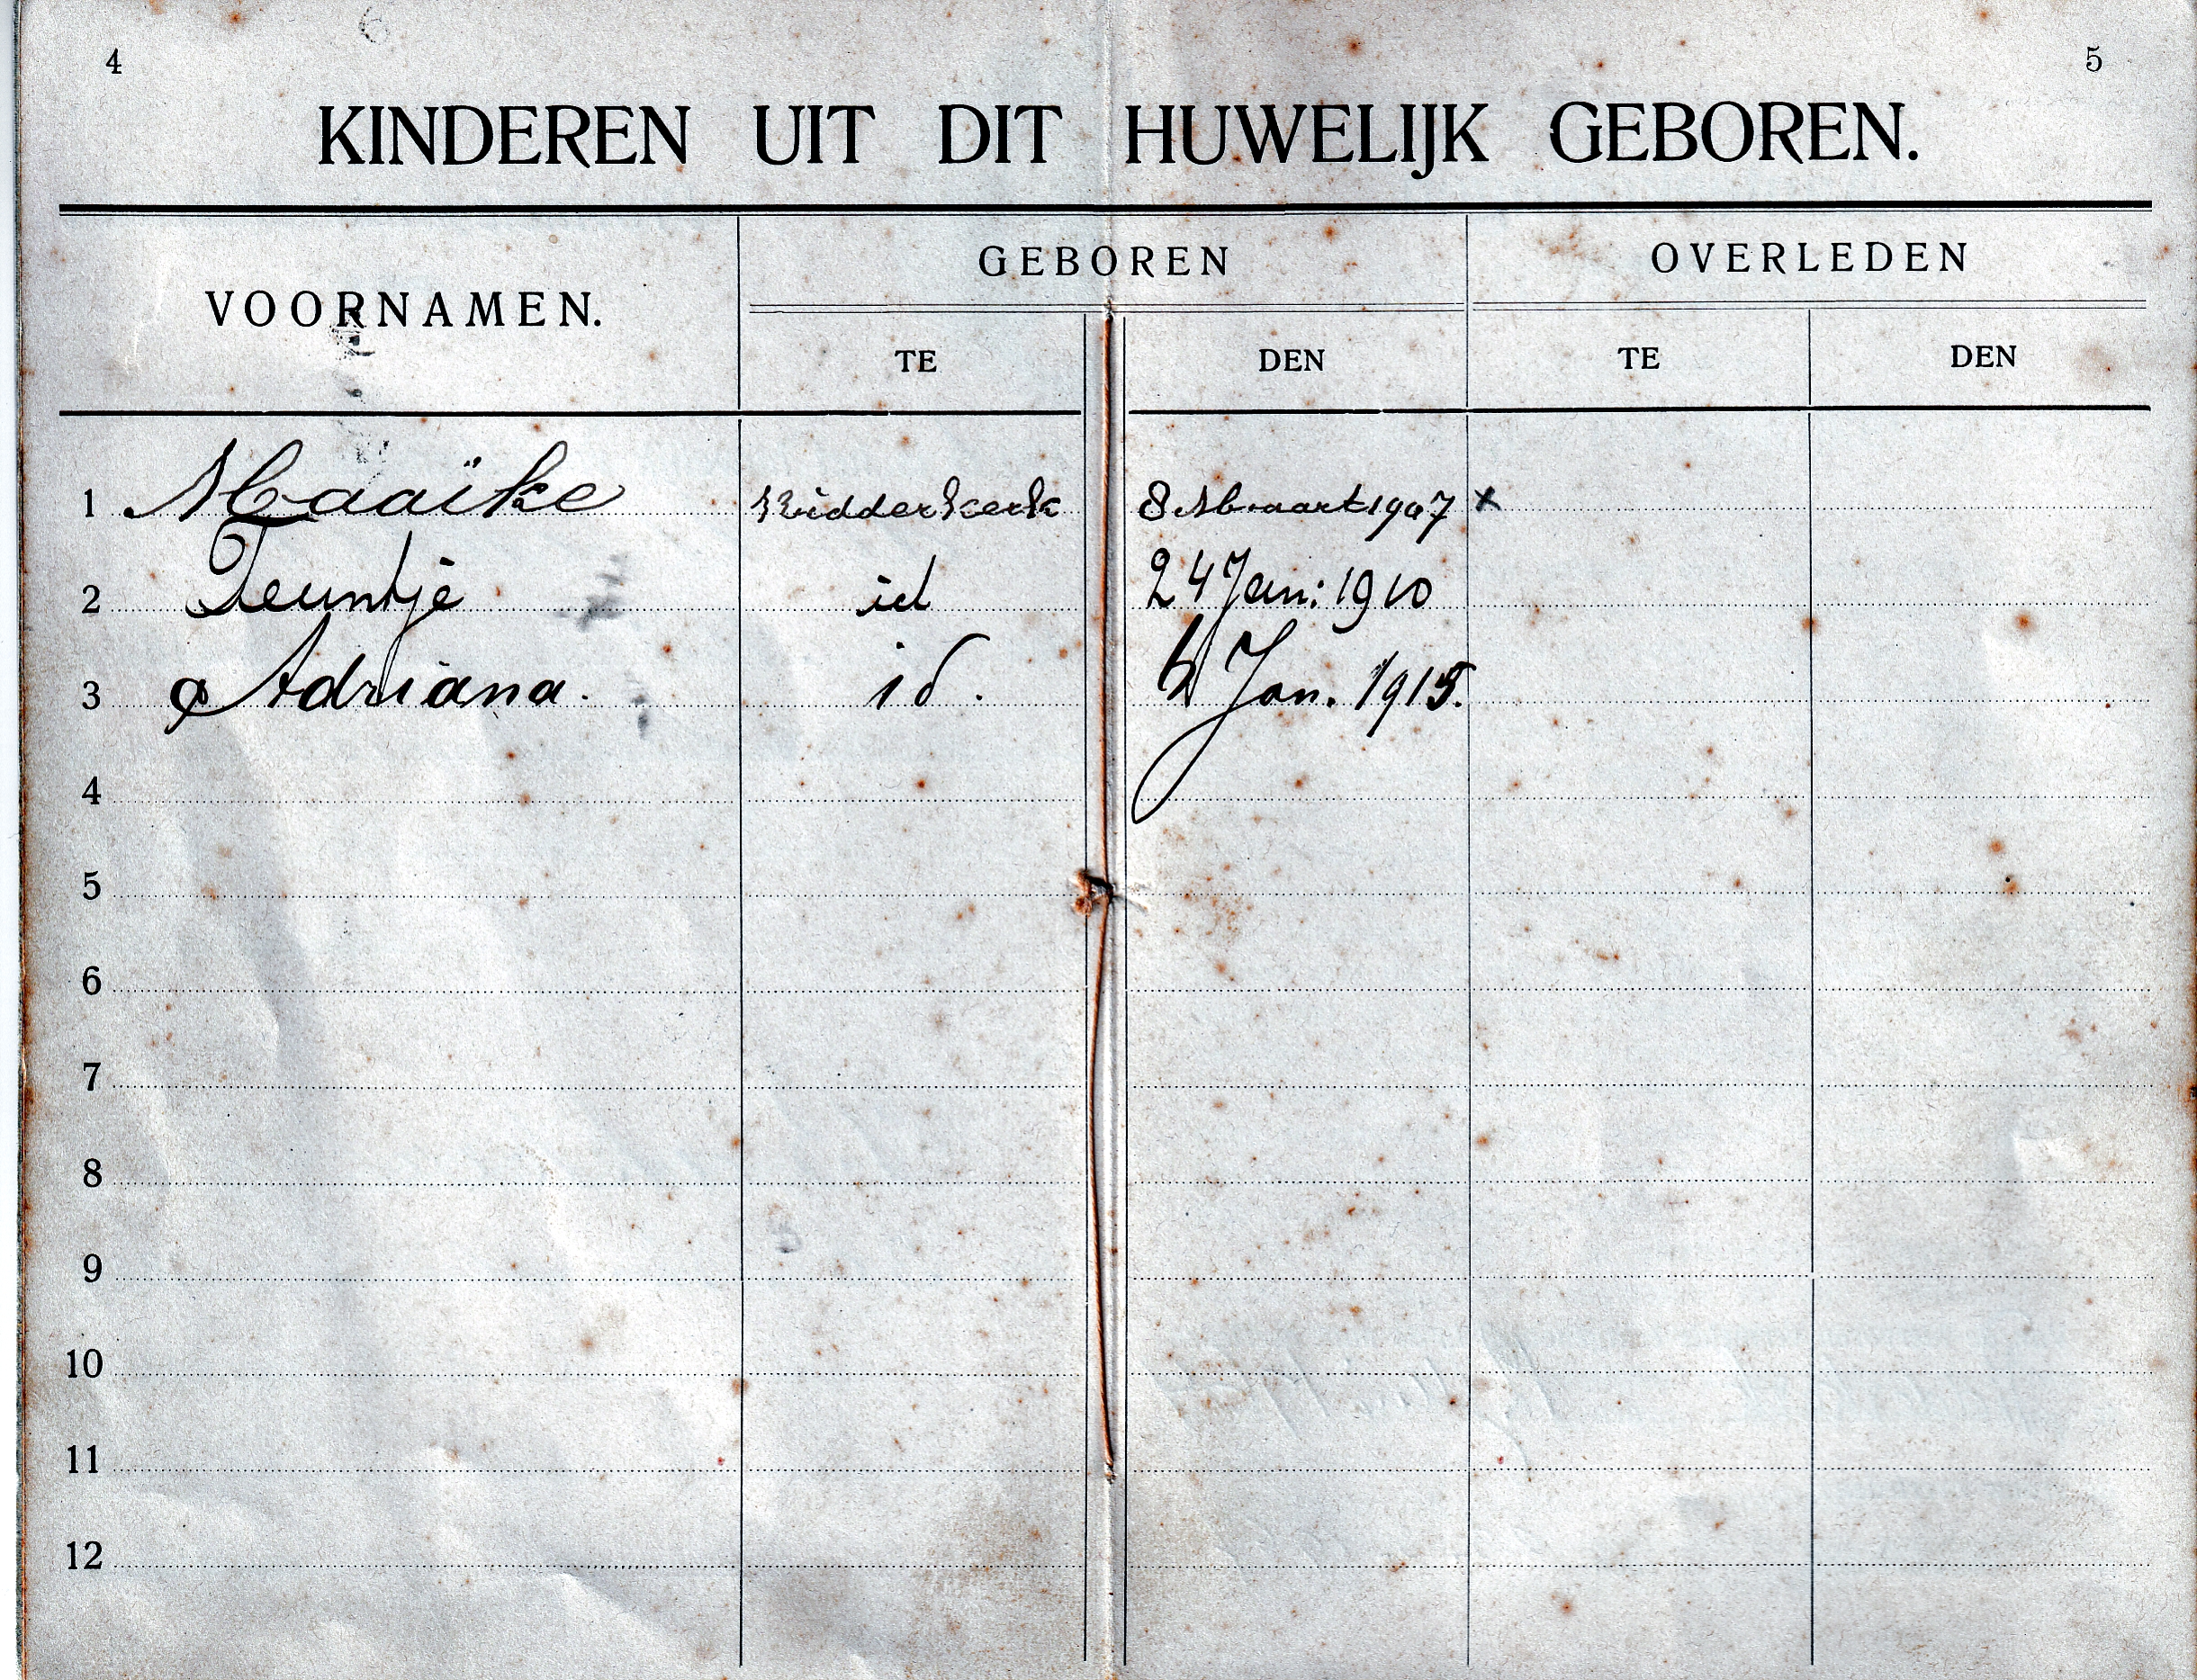 4
5
KINDEREN UIT DIT HUWELIJK GEBOREN.
VOORNAMEN.
GEBOREN
OVERLEDEN
TE
DEN
TE
DEN
1 Maaïke Ridderkerk 8 Maart 1907 x
2 Teuntje id 24 Jan: 1910
3 Adriana. id. Jan. 1915.
4
5
6
7
8
9
10
11
12